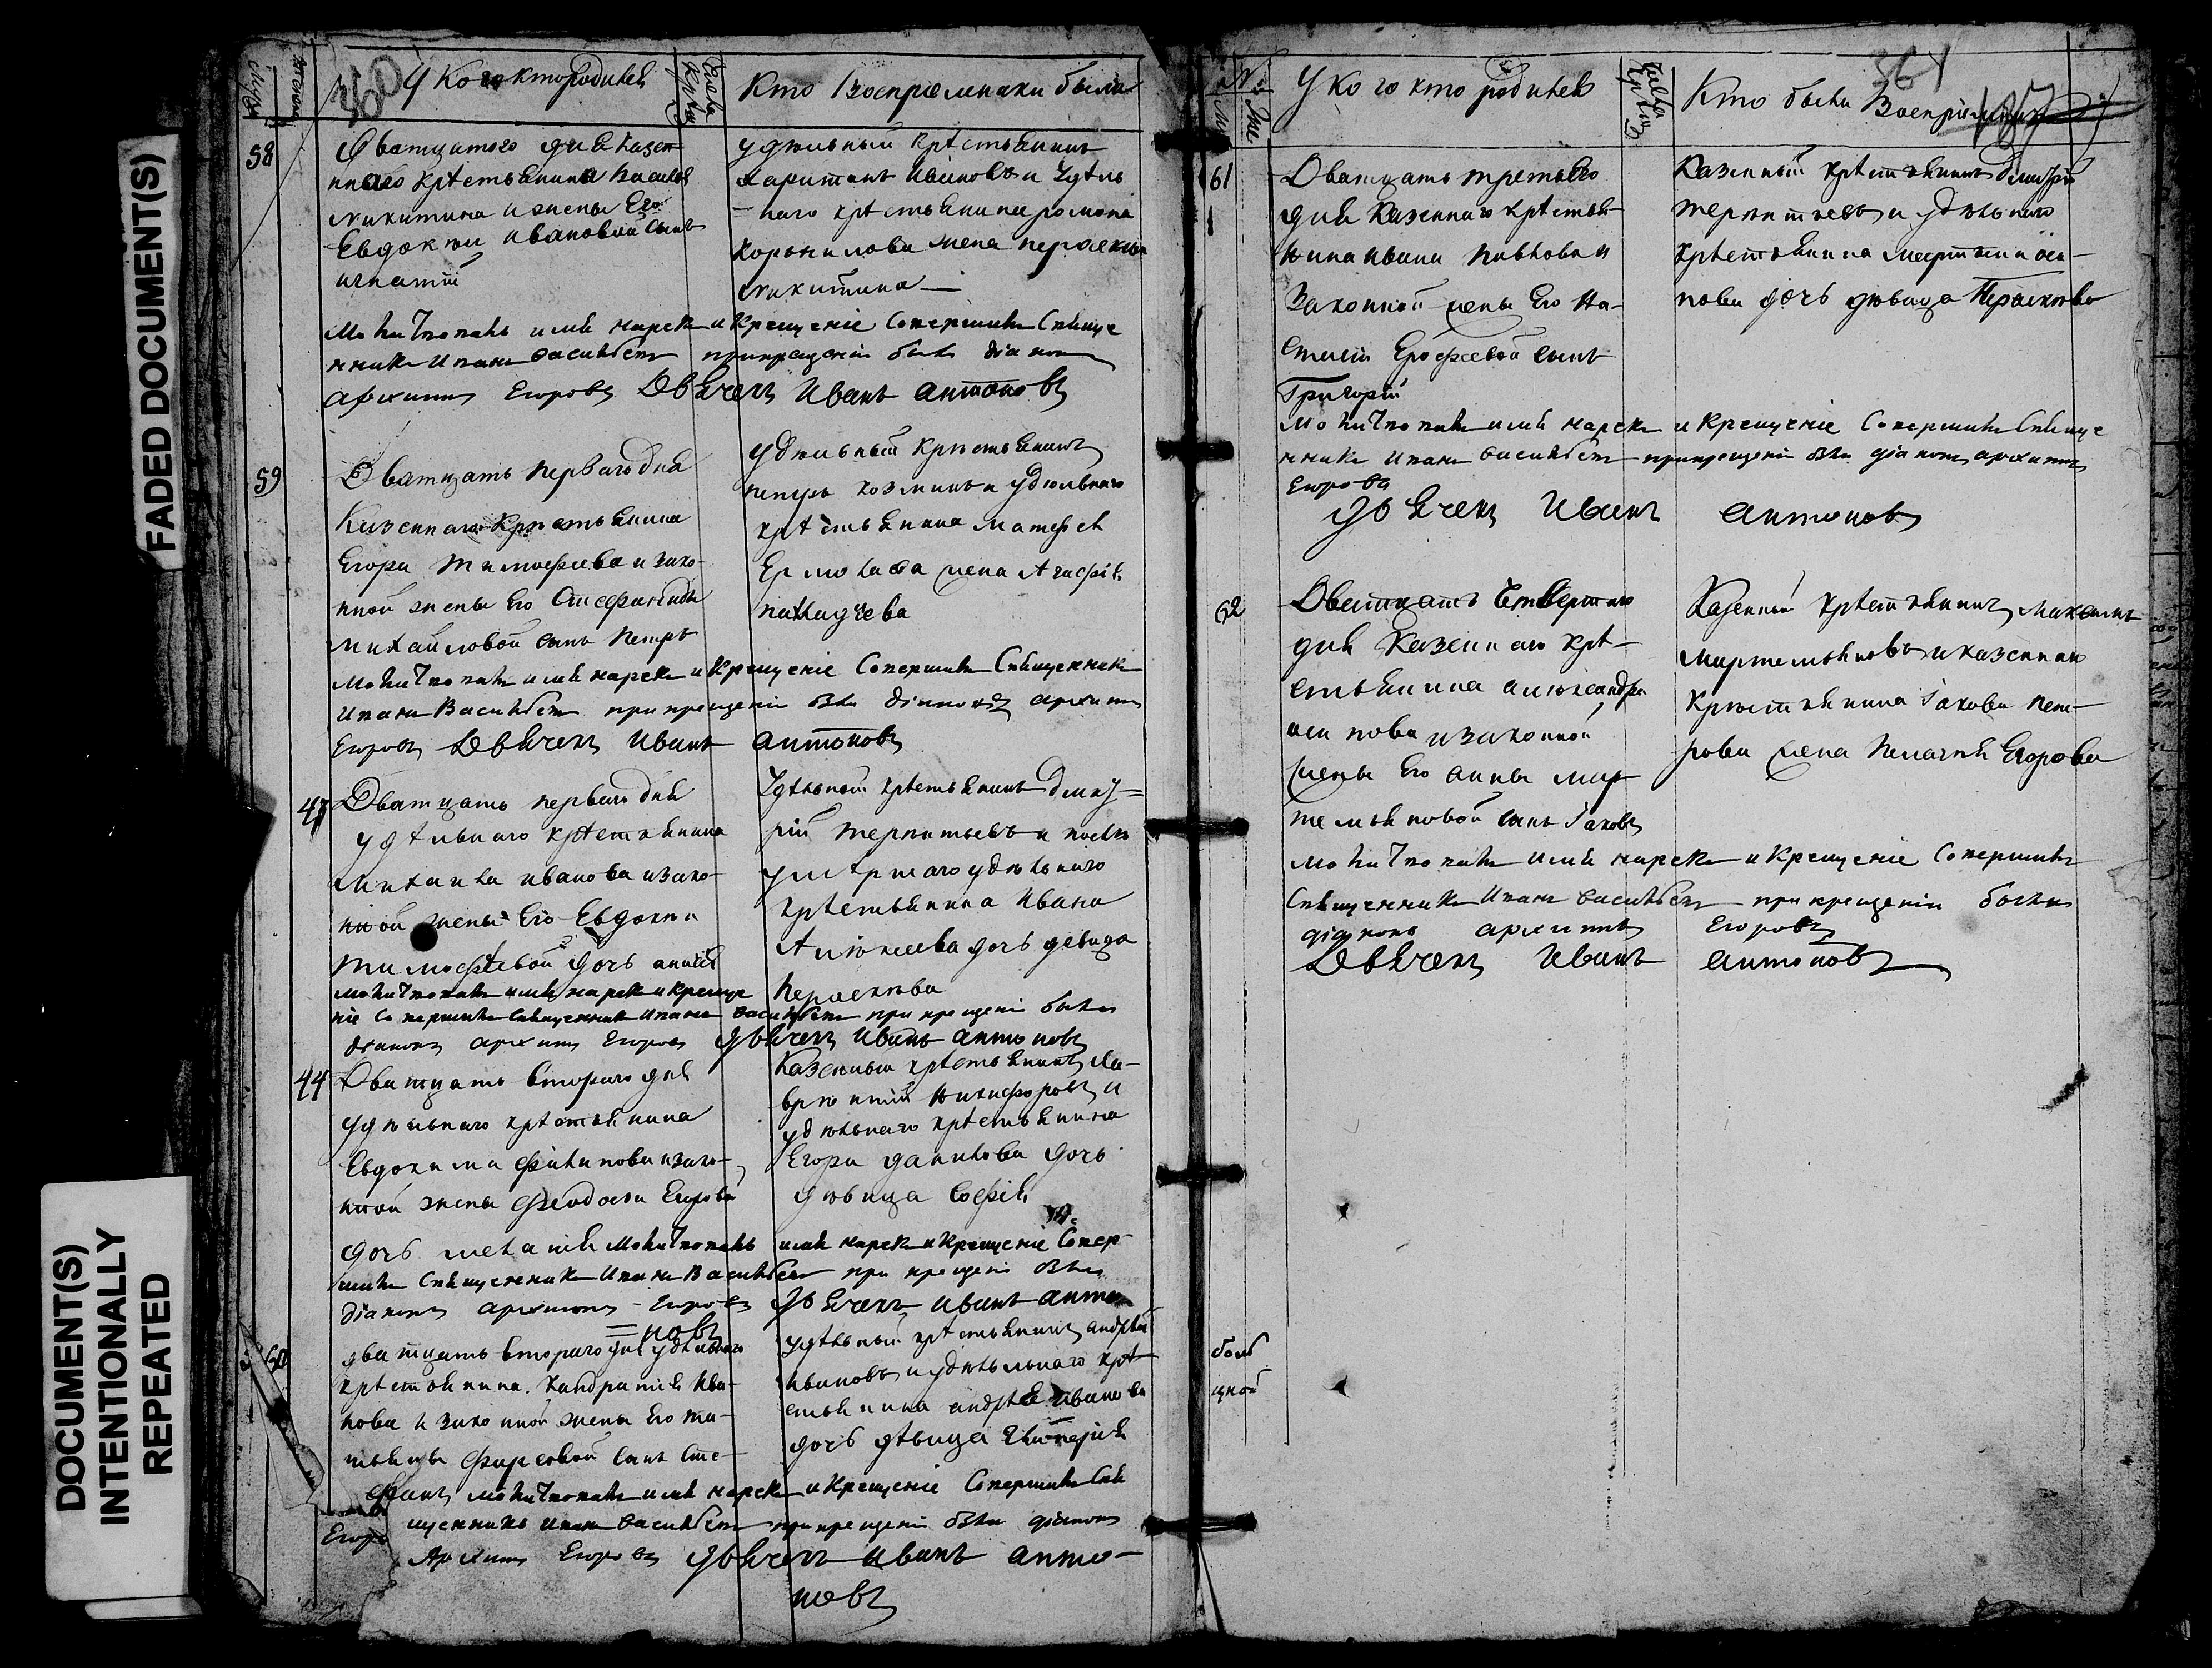 FADED DOCUMENT(S)
DOCUMENT(S)
INTENTIONALLY
REPEATED
360
У кого кто родился
Кто Воспрiемники были
58
Дватцатого дня Казен
ннаго крѣстьянина Василья
Никитина и жены Его
Евдокiи Ивановой сынъ
игнатiй
удѣльный крѣстьянинъ
Харитонъ Ивановъ и Удѣль
-наго крѣстьянина романа
Корнилова жена Параскева
Никитина
Молитвовалъ имя нарекъ и Крещенiе Совершилъ Свяще
нникъ Иванъ васильевъ при крещенiи былъ дiаконъ
архипъ Егоровъ Дьячекъ Иванъ антоновъ
59
Дватцать Перваго дня
Казеннаго Крѣстьянина
Егора Тимофеева и зако-
нной жены Его Стефаниды
Михайловой сынъ Петръ
удѣльный Крѣстьянинъ
петръ козминъ и удѣльнаго
крѣстьянина Матфея
Ермолаева жена Агафiя
Молитвовалъ имя нарекъ и Крещенiе Совершилъ Священникъ
Иванъ Васильевъ при крещенiи былъ дiаконъ архипъ
Егоровъ Дьячекъ Иванъ антоновъ
43
Дватцать перваго дня
удѣльнаго крѣстьянина
Михаила иванова и зако-
нной жены Его Евдокiи
Тимофѣевой дочь
Удѣльный крѣстьянинъ дмит=
рiй терентьевъ и послѣ
умѣршаго удѣльнаго
крѣстьянина Ивана
Алѣксеева дочь девица
Параскева
Молитвовалъ имя нарекъ и Креще
нiе Совершилъ Священникъ Иванъ васильевъ при крещенiи былъ
дiаконъ архипъ Егоровъ Дьячекъ Иванъ антоновъ
44
Дватцать втораго дня
удѣльнаго крѣстьянина
Евдокима Филипова и зако-
нной жены Феодосiи Егоровой
дочь меланiя Молитвовалъ имя нарекъ и Крещенiе Совер-
Казенный крѣстьянинъ Ла-
врѣнтiй Никифоровъ и
удѣльнаго крѣстьянина
Егора данилова дочь
дѣвица Софiя
шилъ Священникъ Иванъ Васильевъ при крещенiи былъ
дiаконъ архипъ Егоровъ Дьячекъ иванъ анто
=новъ
60
дватцать втораго дня удѣльнаго
крѣстьянина Кандратiя Ива-
нова и законной жены Его та-
тьяны Фирсовой сынъ Сте-
удѣльный крѣстьянинъ андрѣй
Ивановъ и удѣльнаго крѣ
стьянина андрѣя иванова
дочь дѣвица
фанъ Молитвовалъ имя нарекъ и Крещенiе Совершилъ Свя
щенникъ иванъ васильевъ при крещенiи былъ дiаконъ
Егоро
Архипъ Егоровъ Дьячекъ Иванъ анто-
новъ
364
У кого кто родился
Кто были Воспрiемники
61
Дватцать третьяго
дня Казеннаго крѣстья-
нина ивана Павлова и
Законной жены Его На-
стасiи Ерофеевой сынъ
Григорiй
Казенный крѣстьянинъ дмитрiй
терентьевъ и удѣльнаго
крѣстьянина мартына оси-
пова дочь дѣвица Прасковья
Молитвовалъ имя нарекъ и Крещенiе Совершилъ Свяще
нникъ Иванъ васильевъ при крещенiи былъ дiаконъ архипъ
Егоровъ
Дьячекъ Иванъ антоновъ
62
Дватцать Четвертаго
дня Казеннаго крѣ-
стьянина алѣксандра
осипова и законной
жены Его анны мар
темьяновой сынъ Iаковъ
Казенный крѣстьянинъ Максимъ
мартемьяновъ и казеннаго
Крѣстьянина Iакова Пет-
рова жена Пелагiя Егорова
Молитвовалъ имя нарекъ и Крещенiе Совершилъ
Священникъ Иванъ васильевъ при крещенiи былъ
дiаконъ архипъ Егоровъ
Дьячекъ Иванъ антоновъ